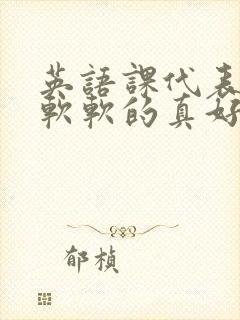 英語課代表
軟軟的真好
郁楨